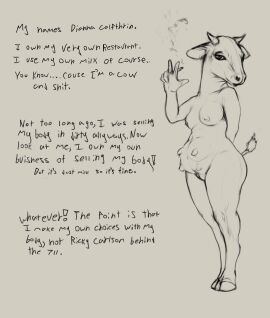 My names Dianna Calfthrin.
I own my very own Restaurant.
I use my own milk of course.
You know....cause I'm a cow
and shit.
Not too long ago, I was selling
my body in dirty alleyways. Now
look at me, I own my own
buisness of selling my body!
But it's just milk so it's fine.
Whatever! The point is that
I make my own choices with my
body, not Ricky Carlson behind
the 711.